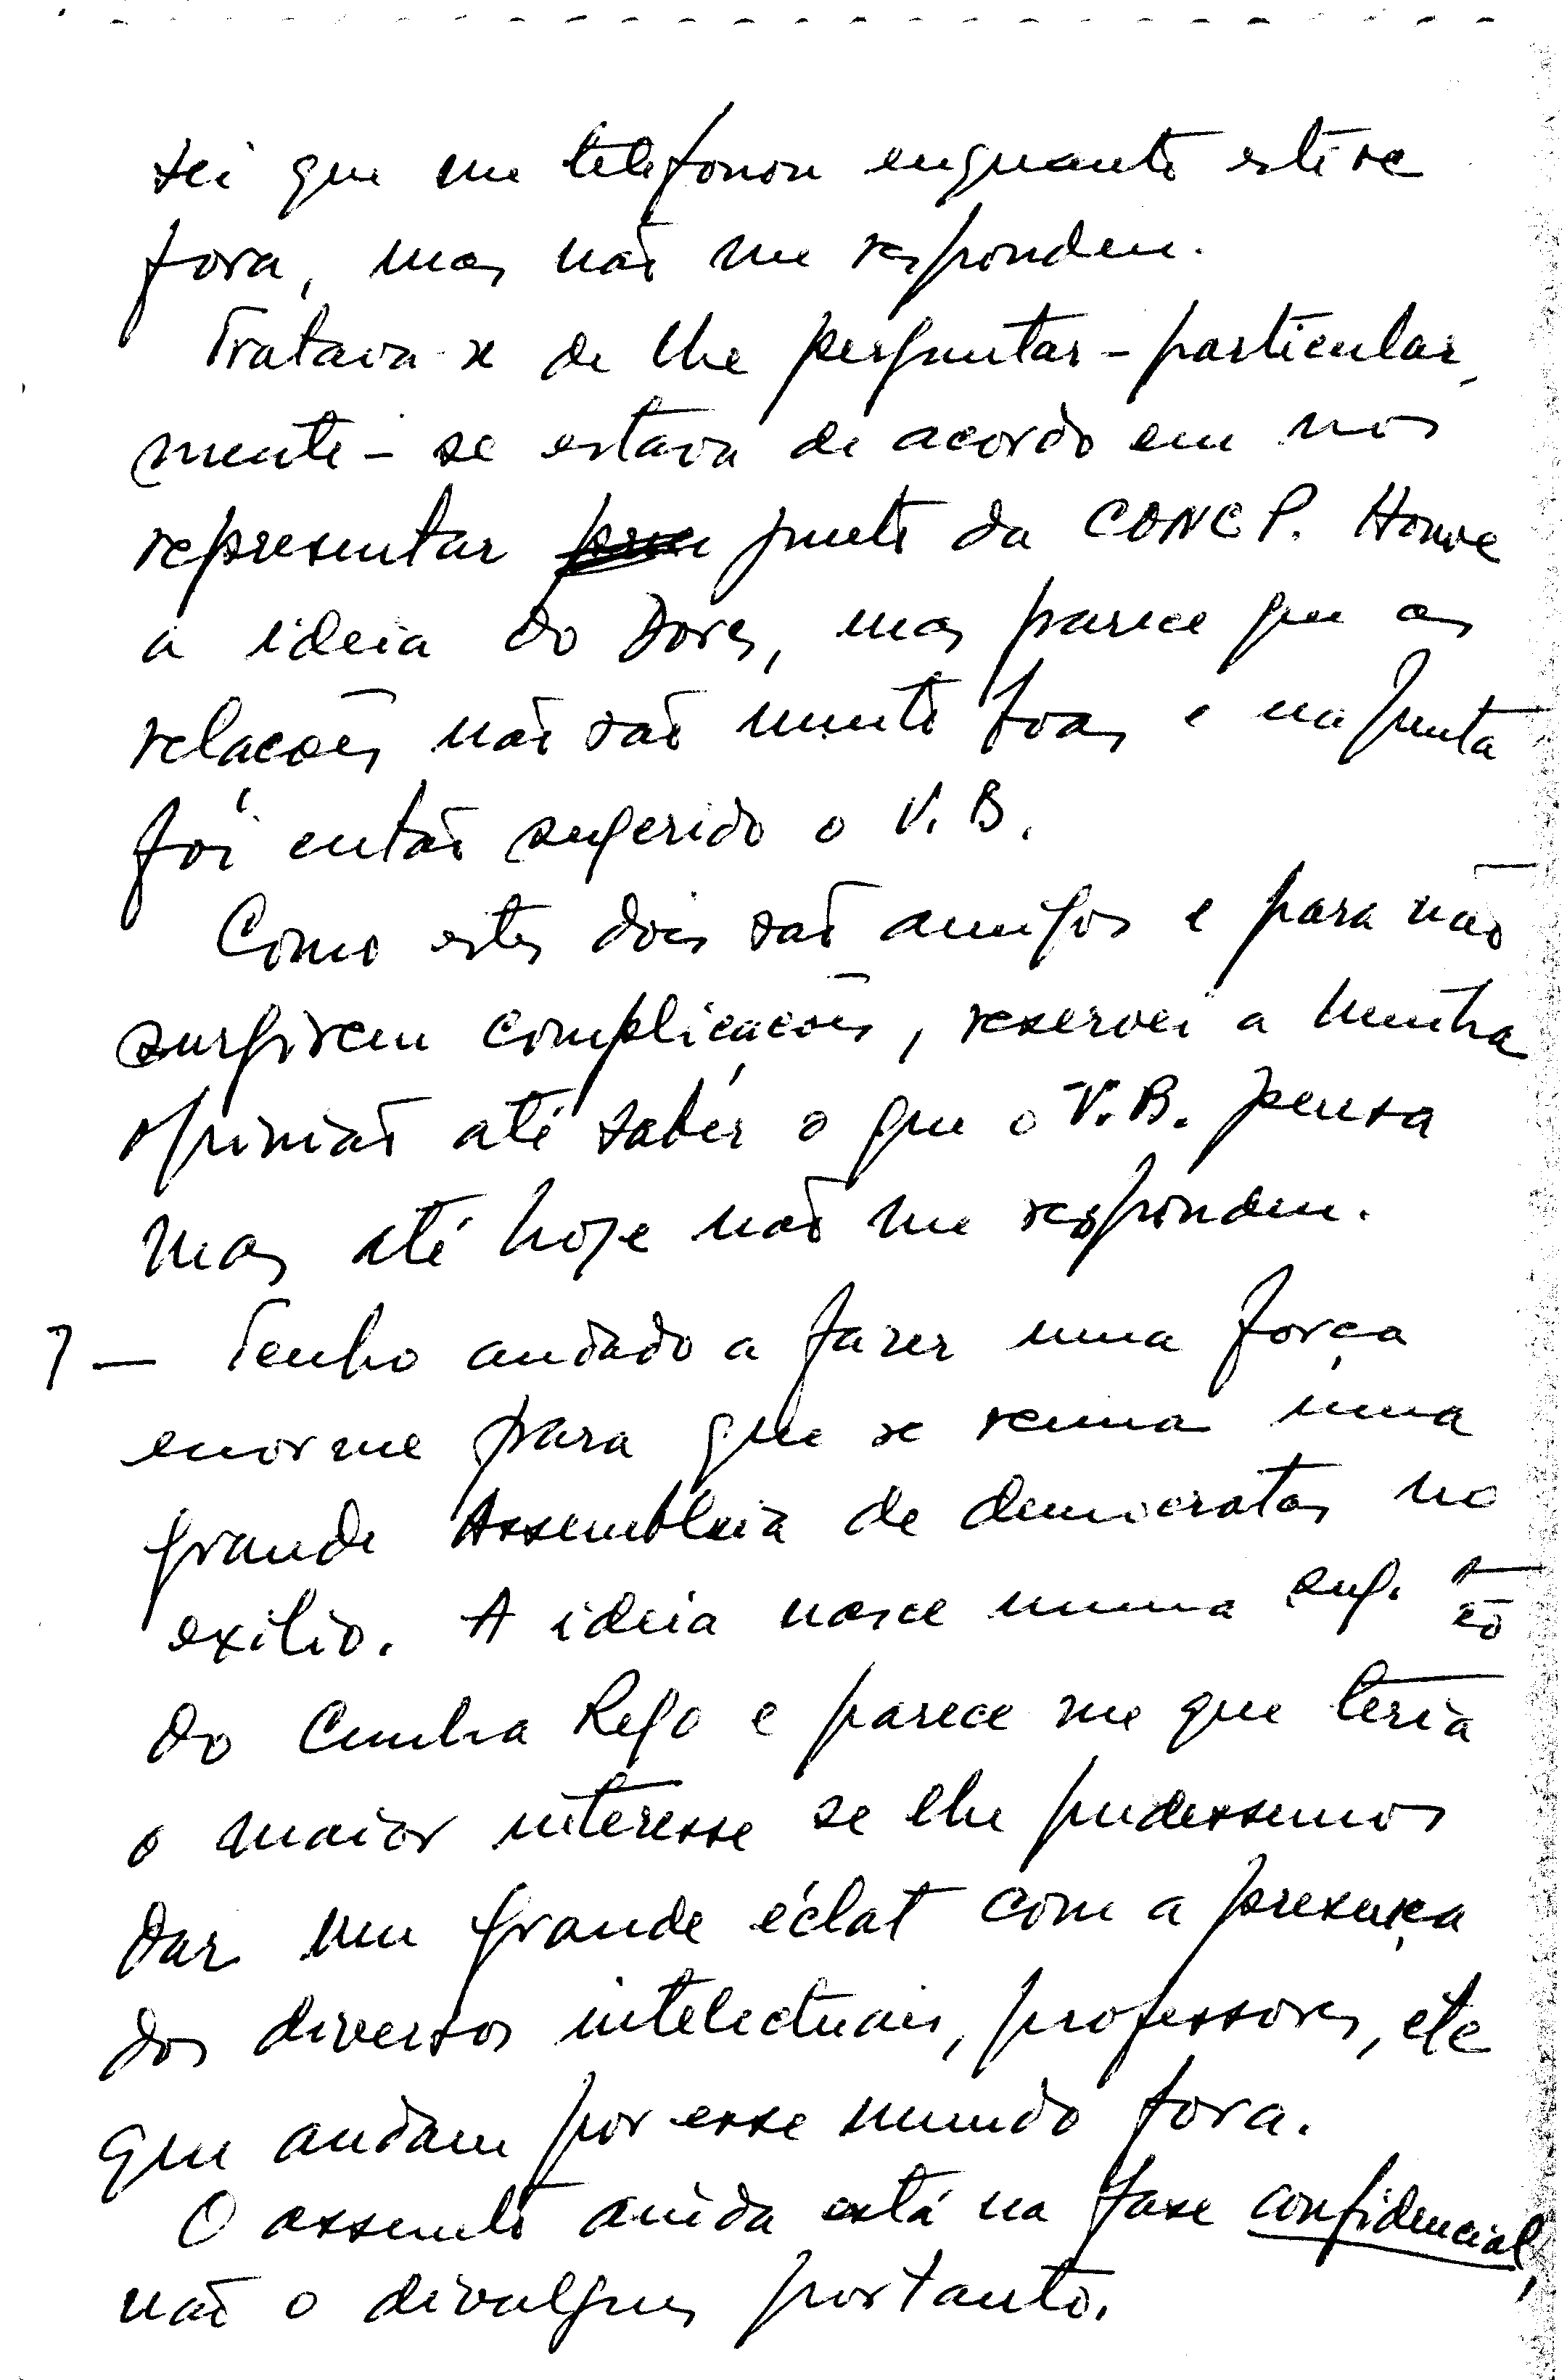 sei que me telefonou enquanto estive
fora, mas não me respondeu.
Tratava-se de lhe perguntar - particular
mente - se estava de acordo em nos
representar junto da CONCP. Houve
a ideia do Dores, mas parece que as
relações não são muito boas e na Junta
foi então sugerido o V. B.
Como estes dois são amigos e para não
surgirem complicações, reservei a minha
opinião até saber o que o V. B. pensa
mas até hoje não me respondeu.
7 — Tenho andado a fazer uma força
enorme para que se reuna uma
grande Assembleia de democratas no
exilio. A ideia nasce numa
do Cunha Rego e parece me que teria
o maior interesse se lhe pudessemos
dar um grande éclat com a presença
dos diversos intelectuais, professores, etc
que andam por esse mundo fora.
O assunto ainda está na fase confidencial,
não o divulgues portanto.